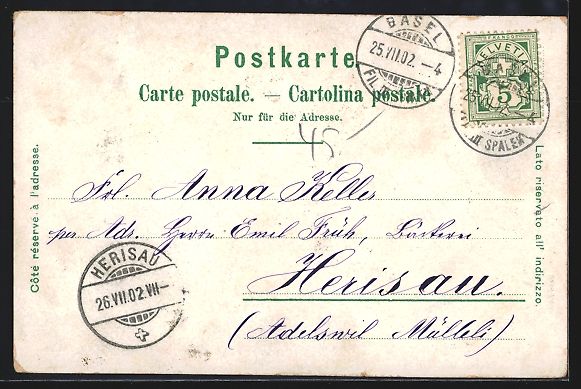 Postkarte
Carte postale. — Cartolina postale.
Nur für die Adresse.
BASEL
25.VII.02.–4
FIL
HELVETIA
5
SPALEN
45
Frl. Anna Keller
per Adr. Herrn Emil Früh, Bäckerei
Herisau.
(Adelswil Mülleli)
HERISAU
26.VII.02.VII–
Côté réservé à l'adresse.
Lato riservato all' indirizzo.